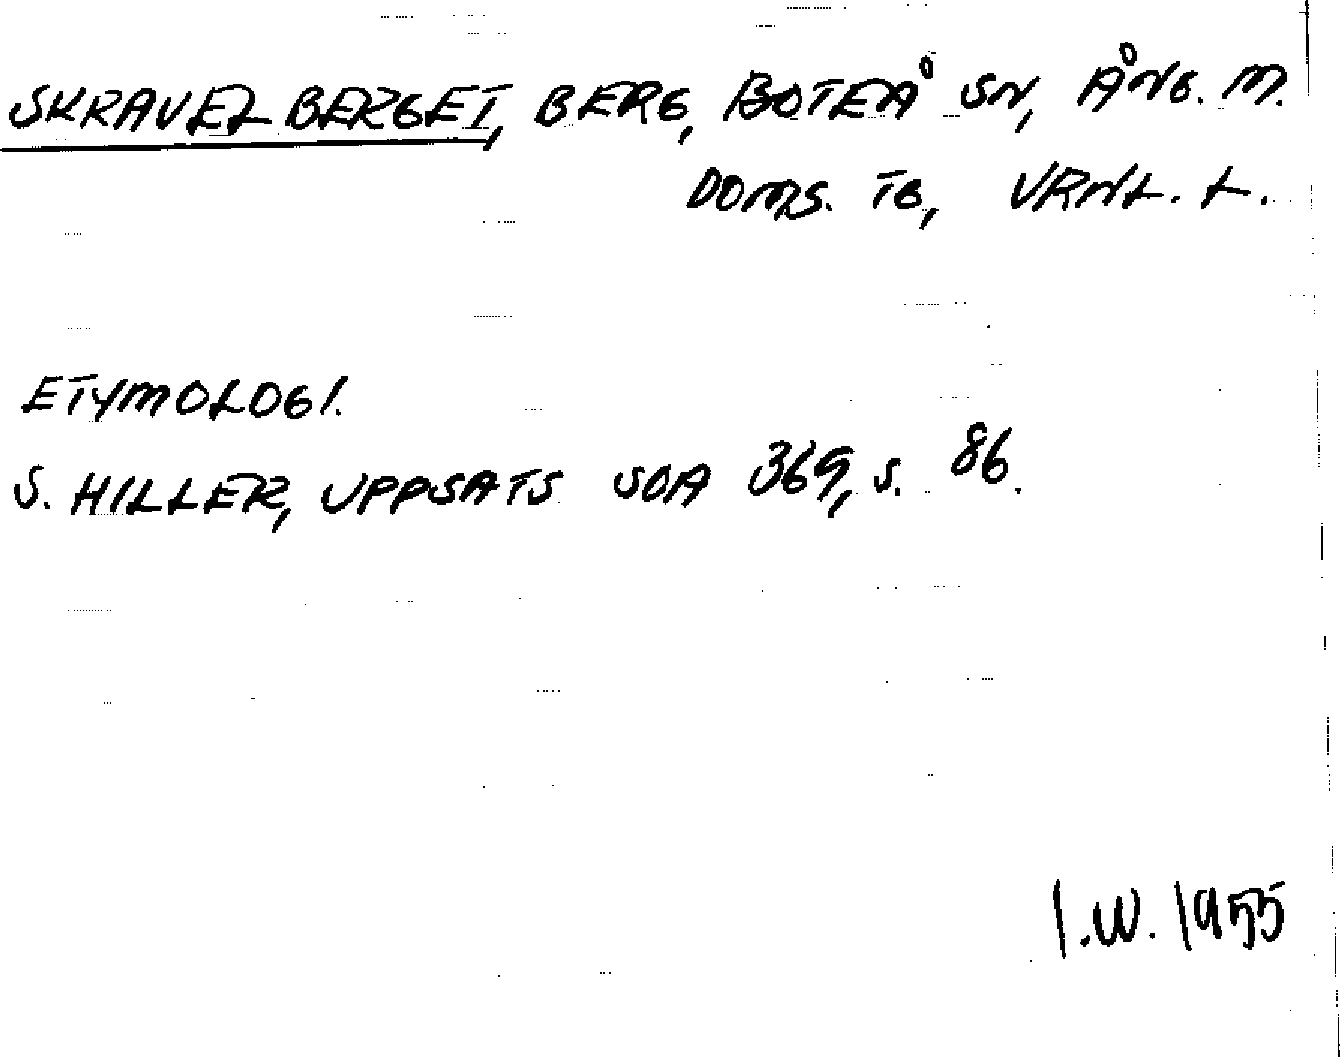 SKRAVELBERGET, BERG, BOTEÅ SN, ÅNG. M.
DOMS. TB, VRNL. L.
ETYMOLOGI.
S. HILLER, UPPSATS SOA 369, S. 86.
I.W. 1955